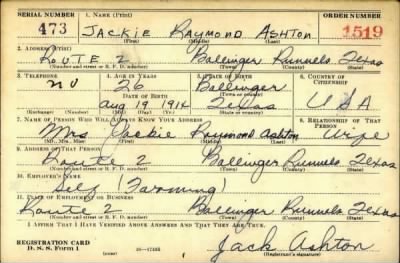 SERIAL NUMBER 1. NAME (Print) ORDER NUMBER
473 JACKIE RAYMOND ASHTON 1519
(First) (Middle) (Last)
2. ADDRESS (Print)
ROUTE 2 Ballinger Runnels Texas
(Number and street or R. F. D. number) (Town) (County) (State)
3. TELEPHONE 4. AGE IN YEARS 5. PLACE OF BIRTH 6. COUNTRY OF CITIZENSHIP
no 26 Ballinger
DATE OF BIRTH (Town or county)
Aug 19 1914 Texas USA
(Exchange) (Number) (Mo.) (Day) (Yr.) (State or country)
7. NAME OF PERSON WHO WILL ALWAYS KNOW YOUR ADDRESS 8. RELATIONSHIP OF THAT PERSON
Mrs Jackie Raymond Ashton Wife
(Mr., Mrs., Miss) (First) (Middle) (Last)
9. ADDRESS OF THAT PERSON
Route 2 Ballinger Runnels Texas
(Number and street or R. F. D. number) (Town) (County) (State)
10. EMPLOYER'S NAME
Self (Farming)
11. PLACE OF EMPLOYMENT OR BUSINESS
Route 2 Ballinger Runnels Texas
(Number and street or R. F. D. number) (Town) (County) (State)
I AFFIRM THAT I HAVE VERIFIED ABOVE ANSWERS AND THAT THEY ARE TRUE.
REGISTRATION CARD Jack Ashton
D. S. S. Form 1 (over) (Registrant's signature)